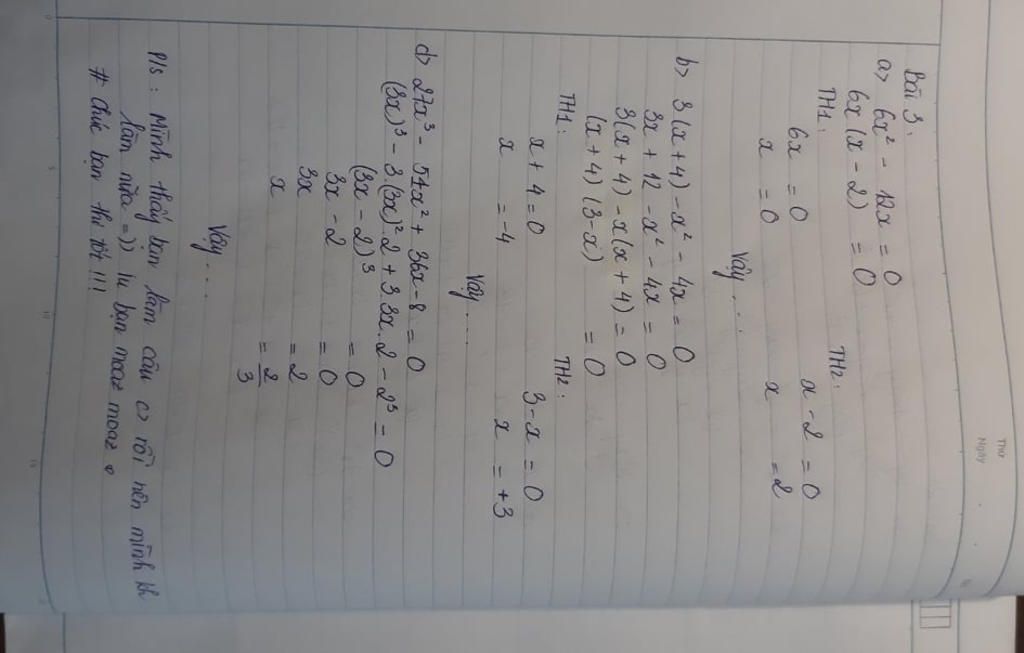 Thứ
Ngày
Bài 3.
a> 6x² - 12x = 0
6x(x - 2) = 0
TH1: TH2:
6x = 0 x - 2 = 0
x = 0 x = 2
Vậy ...
b> 3(x+4) - x² - 4x = 0
3x + 12 - x² - 4x = 0
3(x+4) - x(x+4) = 0
(x+4)(3-x) = 0
TH1: TH2:
x + 4 = 0 3 - x = 0
x = -4 x = +3
Vậy ....
d> 27x³ - 54x² + 36x - 8 = 0
(3x)³ - 3.(3x)².2 + 3 3x.2 - 2³ = 0
(3x - 2)³ = 0
3x - 2 = 0
3x = 2
x = 2/3
Vậy ....
P/s : Mình thấy bạn làm câu c> rồi nên mình kh
làm nữa =)) iu bạn moaz moaz
# chúc bạn thi tốt !!!